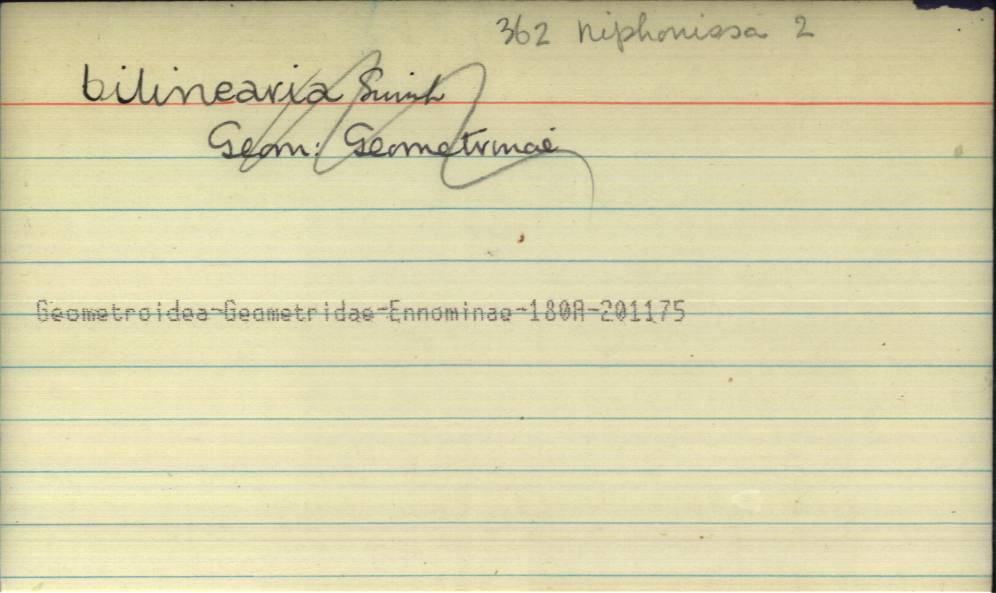 362 Niphonissa 2
bilinearia Swinh
Geom: Geometrinae
Geometroidea-Geometridae-Ennominae-180A-201175